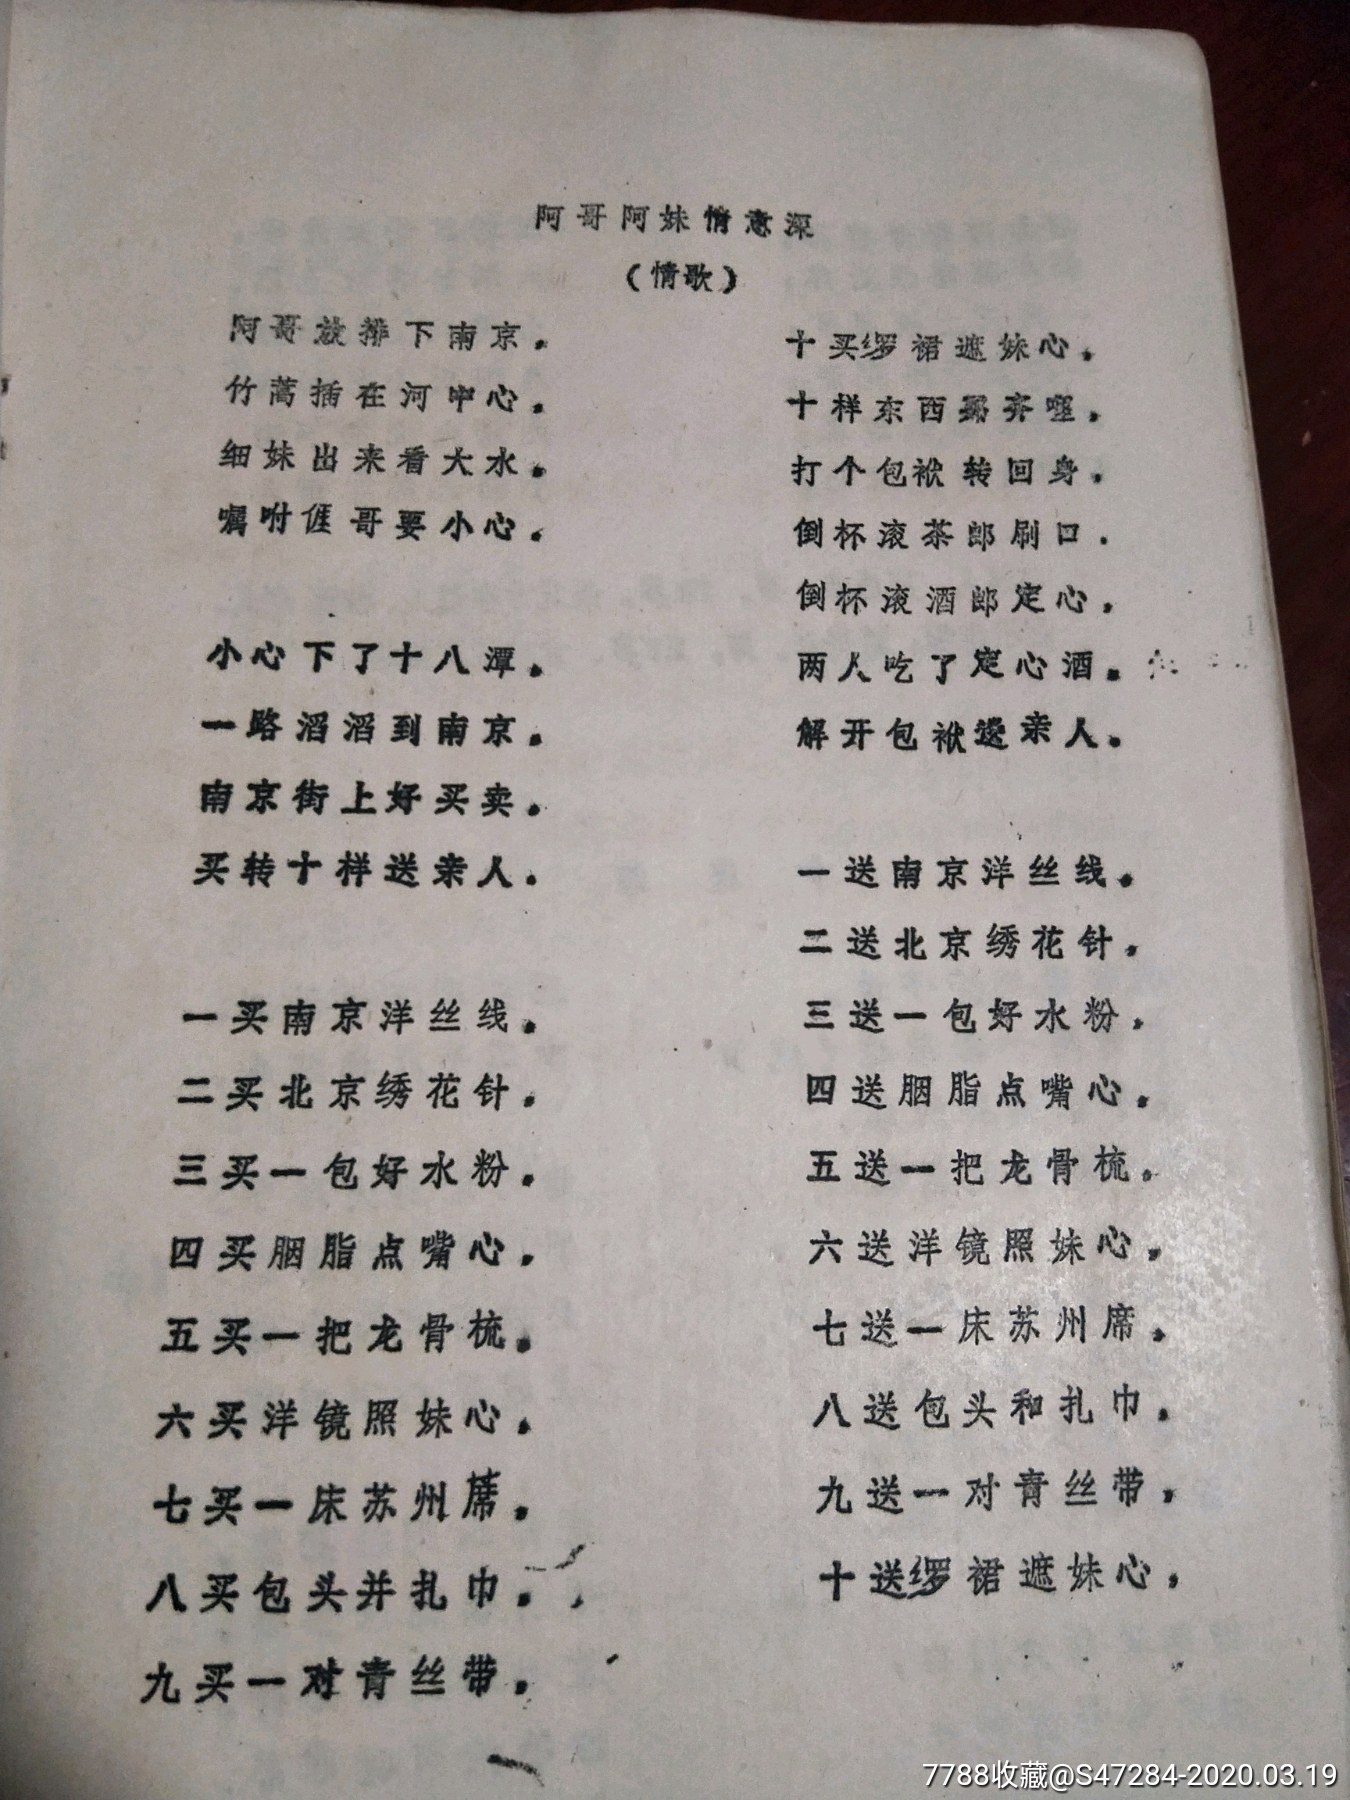 阿哥阿妹情意深
（情歌）
阿哥放排下南京。
竹蒿插在河中心。
细妹出来看大水。
嘱咐𠊎哥要小心。
小心下了十八潭。
一路滔滔到南京。
南京街上好买卖。
买转十样送亲人。
一买南京洋丝线。
二买北京绣花针。
三买一包好水粉。
四买胭脂点嘴心。
五买一把龙骨梳。
六买洋镜照妹心。
七买一床苏州席。
八买包头并扎巾。
九买一对青丝带。
十买纙裙遮妹心。
十样东西齐哩。
打个包袱转回身。
倒杯滚茶郎刷口．
倒杯滚酒郎定心。
两人吃了定心酒。
解开包袱送亲人。
一送南京洋丝线。
二送北京绣花针。
三送一包好水粉。
四送胭脂点嘴心。
五送一把龙骨梳。
六送洋镜照妹心。
七送一床苏州席。
八送包头和扎巾。
九送一对青丝带，
十送纙裙遮妹心，
7788收藏@S47284-2020.03.19